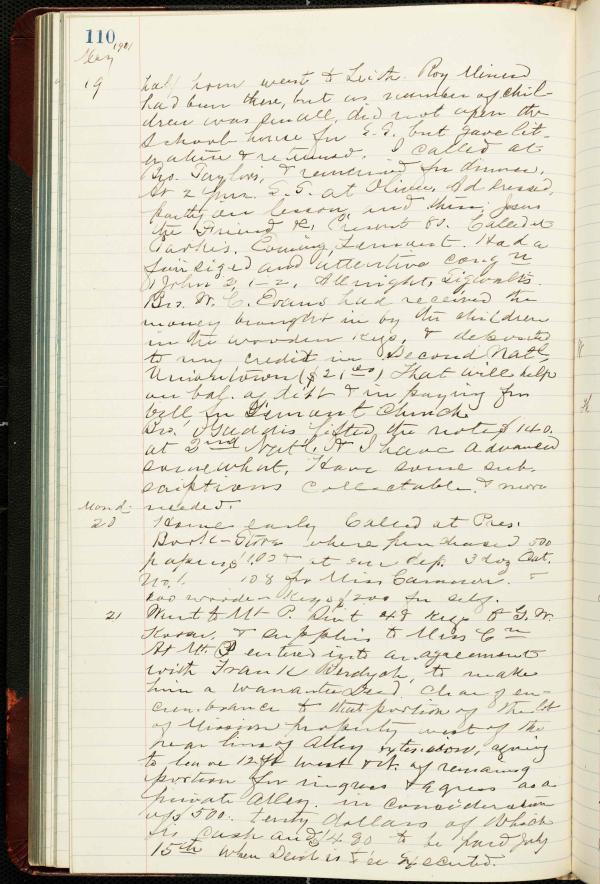 110
May 1901
19 half hour went to Leith. Roy Miner
had been there, but as number of chil-
dren was small, did not open the
School house for S.S. but gave lit-
erature & returned. I called at
Bro. Taylors, & remained for dinner.
At 2 p.m. S.S. at Oliver, Addressed,
partly on lesson, and then Jesus
the Friend &c, Present 80. Called at
Parkis, Coming, Lemont. Had a
fair sized and attentive congn
I John 2, 1-2, All night, Sigwalts.
Bro. W. C. Evans had received the
money brought in by the children
in the wooden kegs, & deposited
to my credit in Second Natl
Uniontown ($21.00) That will help
on bal. of debt & in paying for
bell for Lemont Church
Bro. Gaddis lifted the note $140.
at 2nd Natl. & I have advanced
somewhat, Have some sub-
scriptions collectable. & more
needed.
Mond.
20 Home early Called at Pres.
Book-Store where purchased 500
papers, at 3 doz Cat.
No. 1. 108 for Miss &
200 wooden kegs 200 for self.
21 Went to Mt P. Sent 48 kegs to G. W.
& supplies to Miss Cn
At Mt P entered into an agreement
with Frank Berdych, to make
him a warantee Deed, clear of en-
cumbrance to that portion of the lot
of Mission property west of the
rear line of Alley extension, agreeing
to leave 12 ft west of remaing
portion for ingress & egress as a
private Alley. in consideration
of $500. twenty dollars of which
is cash and $480 to be paid July
15th when Deed is to be executed.